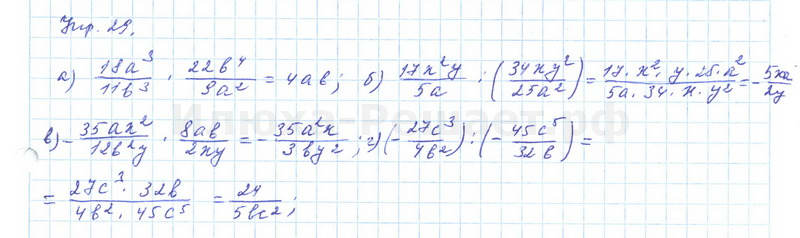 Упр. 29.
а) 18a³/11b³ · 22b⁴/9a² = 4ab; б) 17x²y/5a : (34xy²/25a²) = 17·x²·y·25·a²/5a·34·x·y² = -5xa/2y
в) -35ax²/12b²y · 8ab/2xy = -35a²x/3by²; г) (-27c³/4b²) : (-45c⁵/32b) =
= 27c³·32b/4b²·45c⁵ = 24/5bc²;